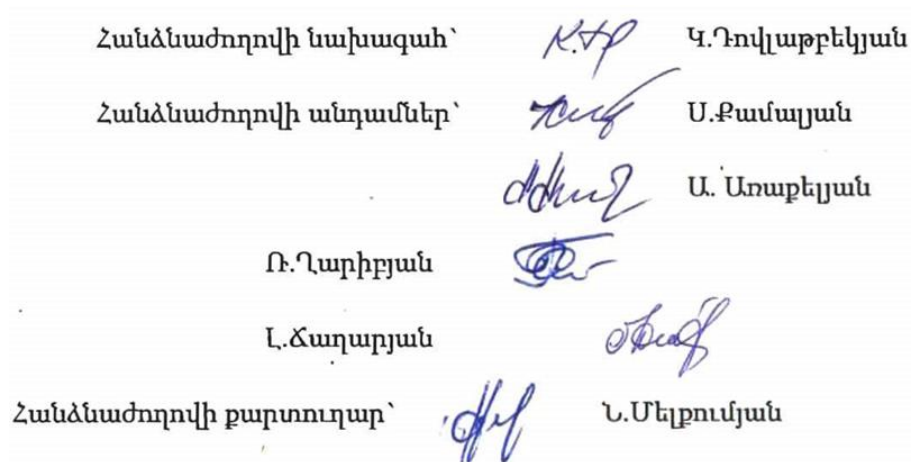 Հանձնաժողովի նախագահ՝ Կ.Դովլաթբեկյան
Հանձնաժողովի անդամներ՝ Ս.Քամալյան
Ա. Առաքելյան
Ռ.Ղարիբյան
Լ.Ճաղարյան
Հանձնաժողովի քարտուղար՝ Ն.Մելքումյան